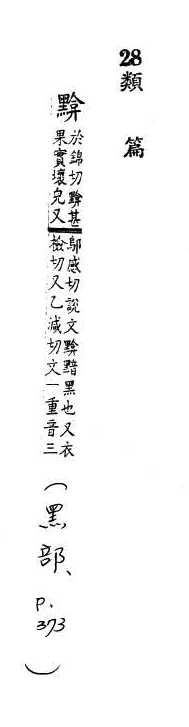 28
類篇
黭
於錦切黭甚
果實壞皃又
鄔感切說文黭黯黑也又衣
檢切又乙減切文一重音三
(黑部、p.373)